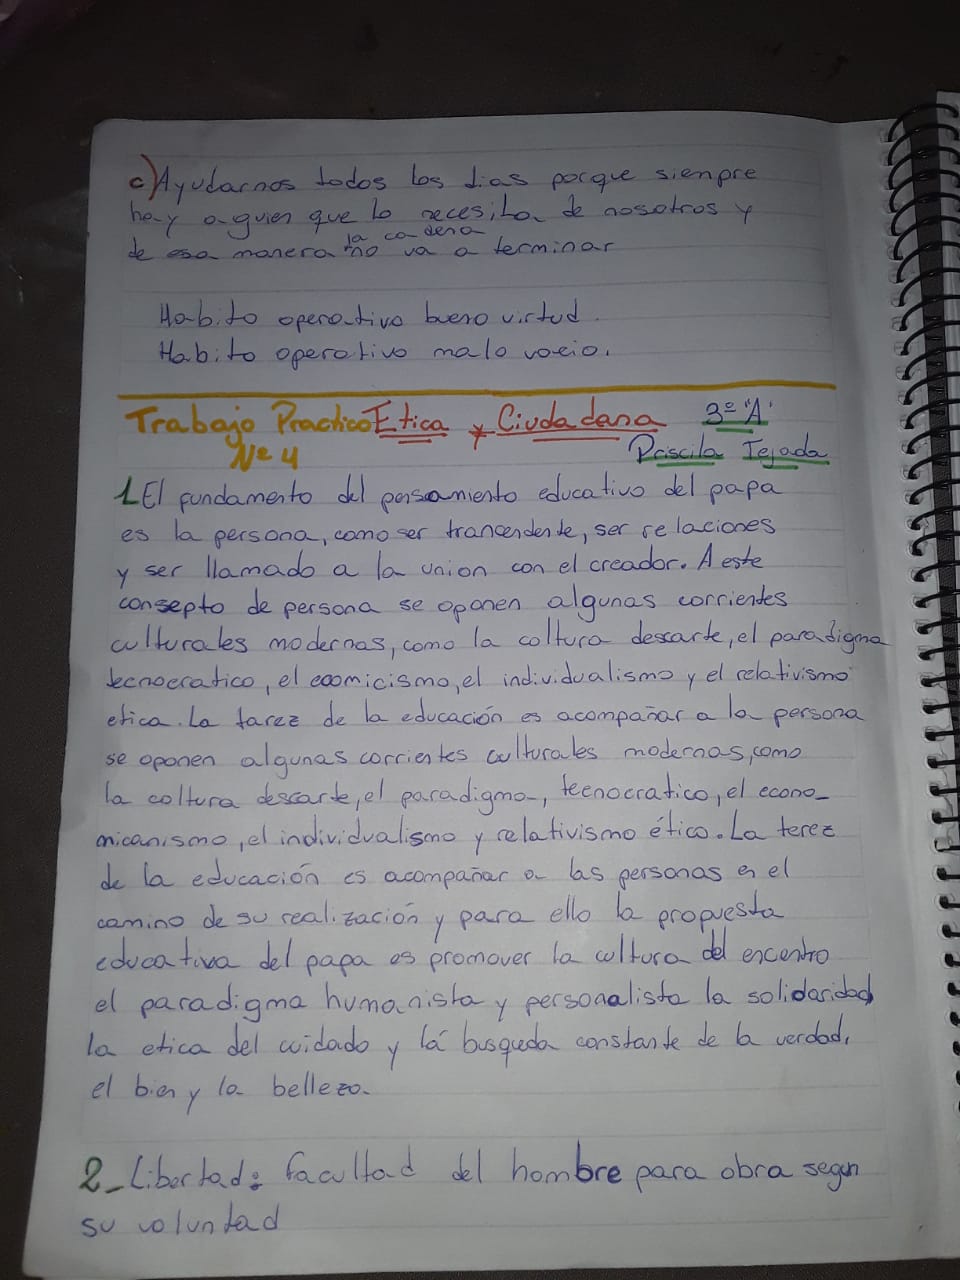 c) Ayudarnos todos los dias porque siempre
hay a guien que lo necesita de nosotros y
de esa manera la cadena no va a terminar
Habito operativo bueno virtud.
Habito operativo malo vocio.
Trabajo Practico Etica y Ciudadana 3º "A"
Nº 4 Priscila Tejada
1 El fundamento del pensamiento educativo del papa
es la persona, como ser trancendente, ser relaciones
y ser llamado a la union con el creador. A este
consepto de persona se oponen algunas corrientes
culturales modernas, como la coltura descarte, el paradigma
tecnocratico, el eomicismo, el individualismo y el relativismo
etica. La tarez de la educación es acompañar a la persona
se oponen algunas corrientes culturales modernas, como
la coltura descarte, el paradigma, tecnocratico, el econo-
micanismo, el individualismo y relativismo ético. La terez
de la educación es acompañar a las personas en el
camino de su realización y para ello la propuesta
educativa del papa es promover la cultura del encentro
el paradigma humanista y personalista la solidaridad
la etica del cuidado y lá busqueda constante de la verdad,
el bien y la belleza.
2_ Libertad: facultad del hombre para obra segun
su voluntad